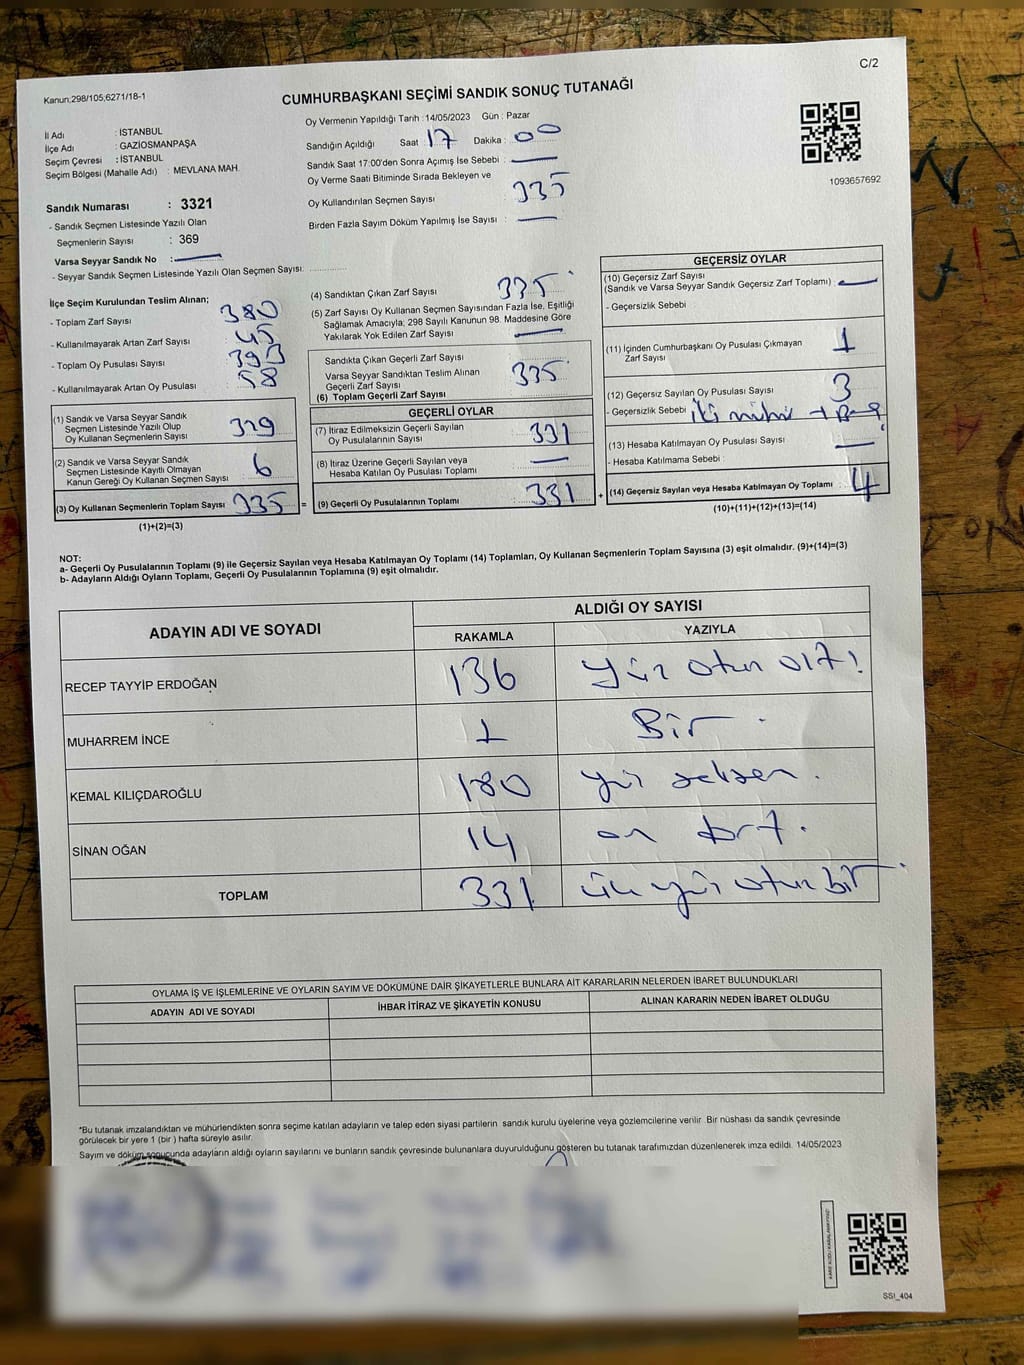 C/2
Kanun;298/105;6271/18-1
CUMHURBAŞKANI SEÇİMİ SANDIK SONUÇ TUTANAĞI
İl Adı : İSTANBUL
İlçe Adı : GAZİOSMANPAŞA
Seçim Çevresi : İSTANBUL
Seçim Bölgesi (Mahalle Adı) : MEVLANA MAH.
Sandık Numarası : 3321
- Sandık Seçmen Listesinde Yazılı Olan
Seçmenlerin Sayısı : 369
Varsa Seyyar Sandık No :
- Seyyar Sandık Seçmen Listesinde Yazılı Olan Seçmen Sayısı:
Oy Vermenin Yapıldığı Tarih : 14/05/2023 Gün : Pazar
Sandığın Açıldığı Saat 17 Dakika : 00
Sandık Saat 17:00'den Sonra Açımış İse Sebebi :
Oy Verme Saati Bitiminde Sırada Bekleyen ve
Oy Kullandırılan Seçmen Sayısı 335
Birden Fazla Sayım Döküm Yapılmış İse Sayısı :
1093657692
İlçe Seçim Kurulundan Teslim Alınan;
- Toplam Zarf Sayısı 380
- Kullanılmayarak Artan Zarf Sayısı : 45
- Toplam Oy Pusulası Sayısı : 393
- Kullanılmayarak Artan Oy Pusulası : 58
(1) Sandık ve Varsa Seyyar Sandık
Seçmen Listesinde Yazılı Olup
Oy Kullanan Seçmenlerin Sayısı 329
(2) Sandık ve Varsa Seyyar Sandık
Seçmen Listesinde Kayıtlı Olmayan
Kanun Gereği Oy Kullanan Seçmen Sayısı 6
(3) Oy Kullanan Seçmenlerin Toplam Sayısı 335 =
(1)+(2)=(3)
(4) Sandıktan Çıkan Zarf Sayısı 335
(5) Zarf Sayısı Oy Kullanan Seçmen Sayısından Fazla İse, Eşitliği
Sağlamak Amacıyla; 298 Sayılı Kanunun 98. Maddesine Göre
Yakılarak Yok Edilen Zarf Sayısı
Sandıkta Çıkan Geçerli Zarf Sayısı
Varsa Seyyar Sandıktan Teslim Alınan
Geçerli Zarf Sayısı 335
(6) Toplam Geçerli Zarf Sayısı
GEÇERLİ OYLAR
(7) İtiraz Edilmeksizin Geçerli Sayılan
Oy Pusulalarının Sayısı 331
(8) İtiraz Üzerine Geçerli Sayılan veya
Hesaba Katılan Oy Pusulası Toplamı
(9) Geçerli Oy Pusulalarının Toplamı 331 +
GEÇERSİZ OYLAR
(10) Geçersiz Zarf Sayısı
(Sandık ve Varsa Seyyar Sandık Geçersiz Zarf Toplamı) :
- Geçersizlik Sebebi :
(11) İçinden Cumhurbaşkanı Oy Pusulası Çıkmayan
Zarf Sayısı 1
(12) Geçersiz Sayılan Oy Pusulası Sayısı 3
- Geçersizlik Sebebi iki mühür
(13) Hesaba Katılmayan Oy Pusulası Sayısı
- Hesaba Katılmama Sebebi :
(14) Geçersiz Sayılan veya Hesaba Katılmayan Oy Toplamı : 4
(10)+(11)+(12)+(13)=(14)
NOT:
a- Geçerli Oy Pusulalarının Toplamı (9) ile Geçersiz Sayılan veya Hesaba Katılmayan Oy Toplamı (14) Toplamları, Oy Kullanan Seçmenlerin Toplam Sayısına (3) eşit olmalıdır. (9)+(14)=(3)
b- Adayların Aldığı Oyların Toplamı, Geçerli Oy Pusulalarının Toplamına (9) eşit olmalıdır.
ADAYIN ADI VE SOYADI ALDIĞI OY SAYISI
RAKAMLA YAZIYLA
RECEP TAYYİP ERDOĞAN 136 yüz otuz altı
MUHARREM İNCE 1 Bir
KEMAL KILIÇDAROĞLU 180 yüz seksen.
SİNAN OĞAN 14 on dört.
TOPLAM 331 üç yüz otuz bir
OYLAMA İŞ VE İŞLEMLERİNE VE OYLARIN SAYIM VE DÖKÜMÜNE DAİR ŞİKAYETLERLE BUNLARA AİT KARARLARIN NELERDEN İBARET BULUNDUKLARI
ADAYIN ADI VE SOYADI İHBAR İTİRAZ VE ŞİKAYETİN KONUSU ALINAN KARARIN NEDEN İBARET OLDUĞU
*Bu tutanak imzalandıktan ve mühürlendikten sonra seçime katılan adayların ve talep eden siyasi partilerin sandık kurulu üyelerine veya gözlemcilerine verilir. Bir nüshası da sandık çevresinde
görülecek bir yere 1 (bir ) hafta süreyle asılır.
Sayım ve döküm sonucunda adayların aldığı oyların sayılarını ve bunların sandık çevresinde bulunanlara duyurulduğunu gösteren bu tutanak tarafımızdan düzenlenerek imza edildi. 14/05/2023
SSI_404